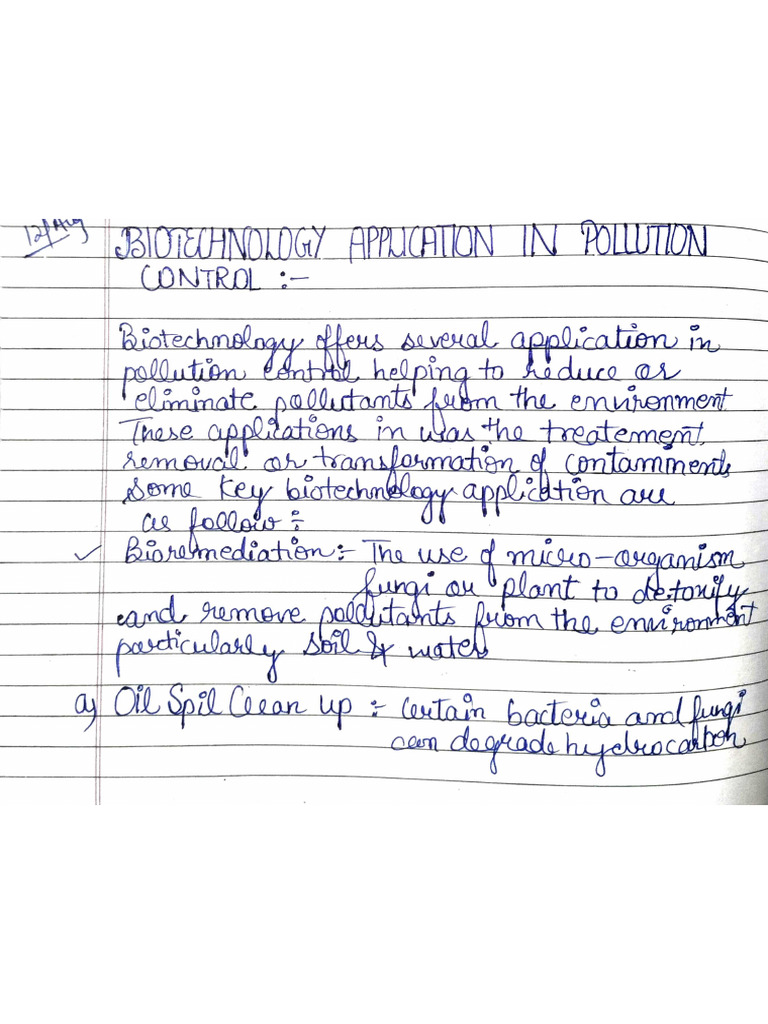 12/Aug
BIOTECHNOLOGY APPLICATION IN POLLUTION
CONTROL :-
Biotechnology offers several application in
pollution control helping to reduce or
eliminate pollutants from the environment
These applications in was the treatement,
removal or transformation of contamments
Some key biotechnology application are
as follow :-
✓ Bioremediation:- The use of micro-organism
fungi or plant to detoxify
and remove pollutants from the environment
particularly soil & water
a) Oil Spil Clean up :- Certain bacteria and fungi
can degrade hydrocarbon